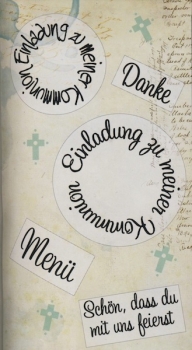 Einladung zu meiner Kommunion
Danke
Einladung zu meiner Kommunion
Menü
Schön, dass du
mit uns feierst